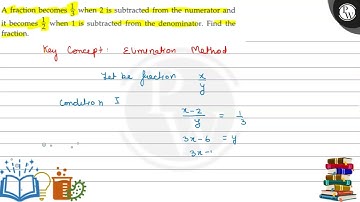 A fraction becomes 1/3 when 2 is subtracted from the numerator and
it becomes 1/2 when 1 is subtracted from the denominator. Find the
fraction.
Key Concept: Elimination Method
Let be fraction x/y
Condition I
x-2/y = 1/3
3x-6 = y
3x -